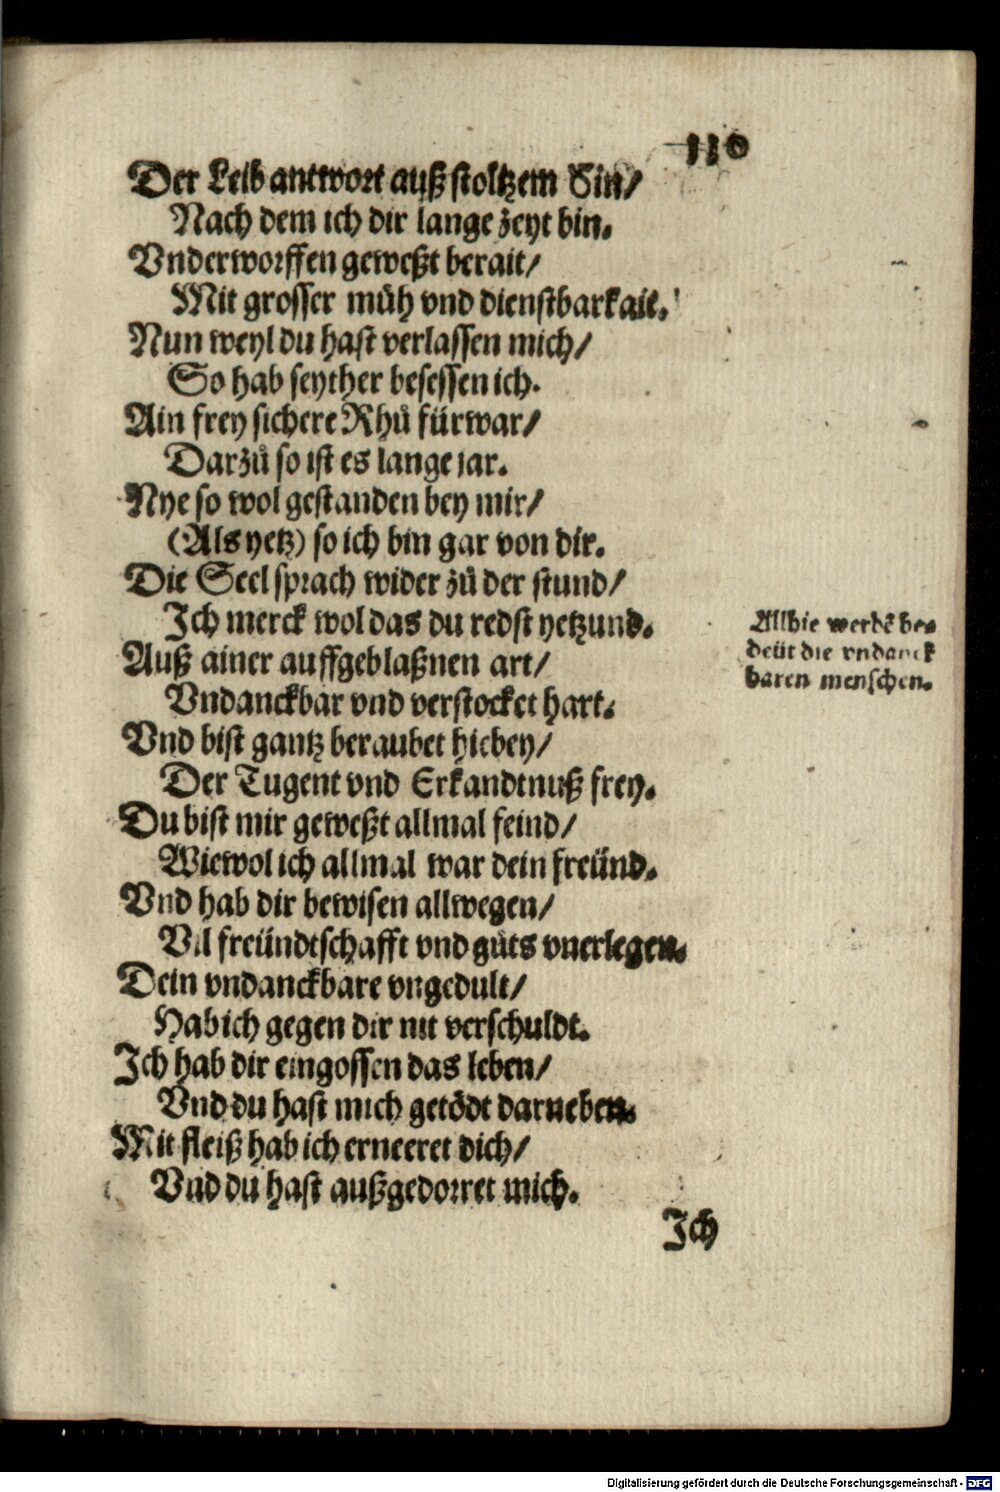 110
Der Leib antwort auß stoltzem Sin/
Nach dem ich dir lange zeyt bin.
Vnderworffen geweßt berait/
Mit grosser müh vnd dienstbarkait.
Nun weyl du hast verlassen mich/
So hab seyther besessen ich.
Ain frey sichere Rhů fürwar/
Darzů so ist es lange jar.
Nye so wol gestanden bey mir/
(Als yetz) so ich bin gar von dir.
Die Seel sprach wider zů der stund/
Ich merck wol das du redst yetzund.
Auß ainer auffgeblaßnen art/
Vndanckbar vnd verstocket hart.
Vnd bist gantz beraubet hiebey/
Der Tugent vnd Erkandtnuß frey.
Du bist mir geweßt allmal feind/
Wiewol ich allmal war dein freünd.
Vnd hab dir bewisen allwegen/
Vil freündtschafft vnd gůts vnerlegen.
Dein vndanckbare vngedult/
Hab ich gegen dir nit verschuldt.
Ich hab dir eingossen das leben/
Vnd du hast mich getödt darneben.
Mit fleiß hab ich erneeret dich/
Vnd du hast außgedorret mich.
Ich
Allhie werdē be-
deüt die vndanck
baren menschen.
Digitalisierung gefördert durch die Deutsche Forschungsgemeinschaft - DFG